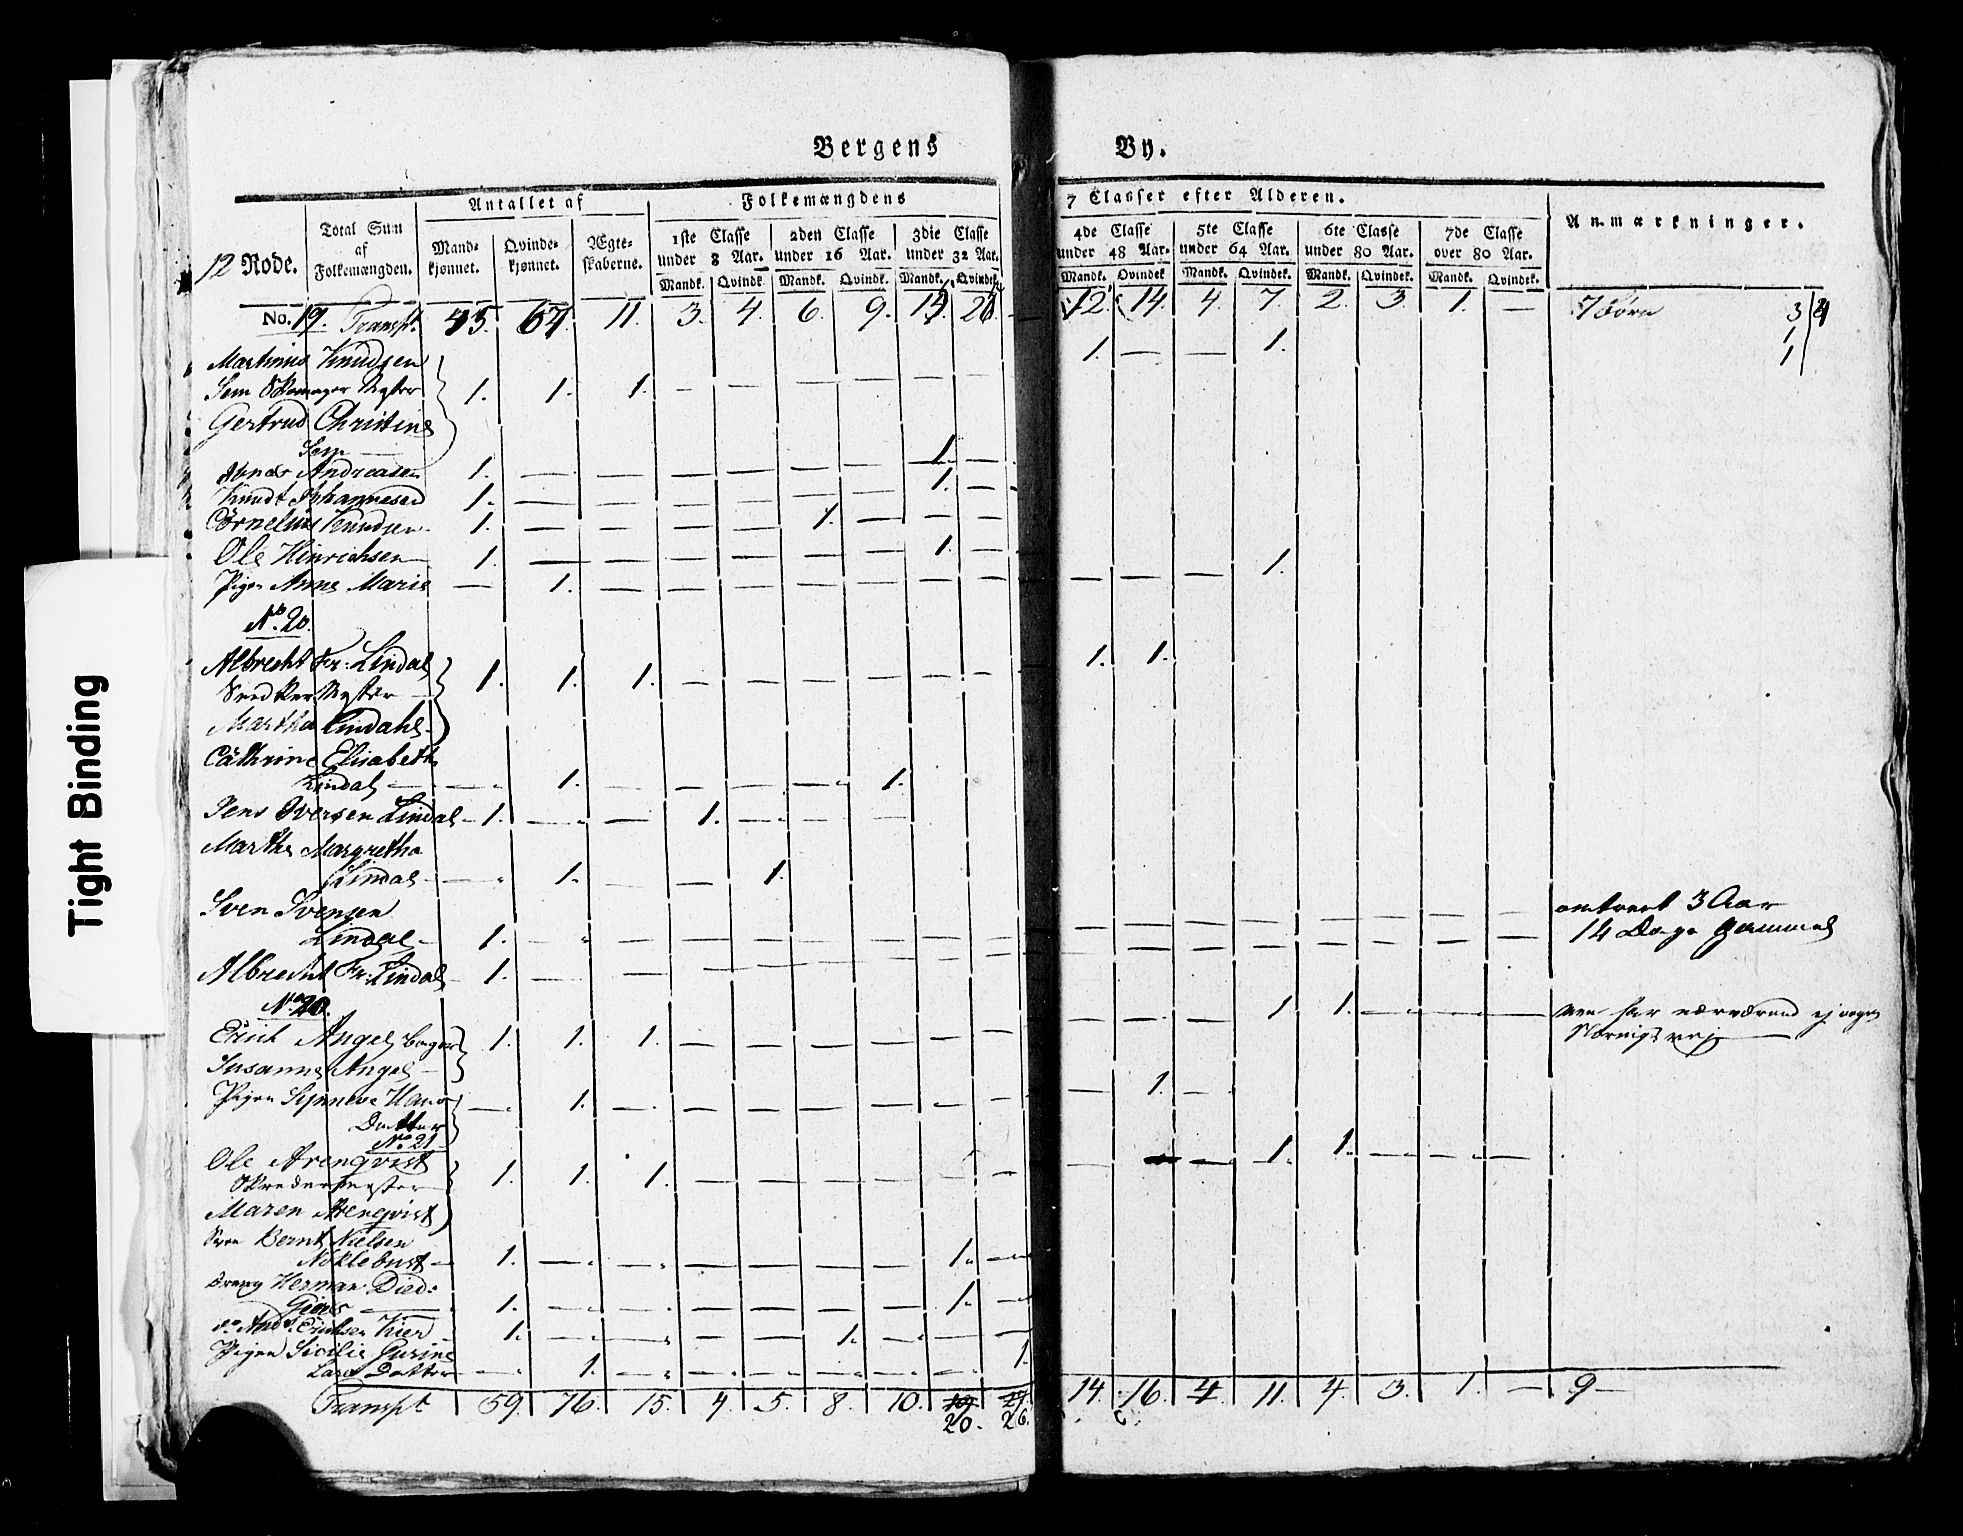 Tight Binding
Bergens By.
12 Rode.
Total Sum af Folkemængden.
Antallet af
Mandkjønnet. Qvindekjønnet. Ægteskaberne.
Folkemængdens 7 Classer efter Alderen.
1ste Classe under 8 Aar. 2den Classe under 16 Aar. 3die Classe under 32 Aar. 4de Classe under 48 Aar. 5te Classe under 64 Aar. 6te Classe under 80 Aar. 7de Classe over 80 Aar.
Mandk. Qvindek. Mandk. Qvindek. Mandk. Qvindek. Mandk. Qvindek. Mandk. Qvindek. Mandk. Qvindek. Mandk. Qvindek.
Anmærkninger.
No. 19. Transpt. 45. 67. 11. 3. 4. 6. 9. 12. 14. 4. 7. 2. 3. 1. — 7 børn 3
Martinus Knudsen 1. — — 1. 1
Sem 1. 1. 1. — — — — — — 1
Gertrud Christine
Sem
Andreasen 1. — — — — — — 1. —
Knudt Johannesen 1. — — — — — — 1. —
Cornelius Knudsen 1. — — — — 1. — — —
Ole Hinrichsen 1. — — — — — — 1. —
Pigen Anne Marie — 1. — — — — — — — — — — 1.
No. 20.
Albrecht Fr: Lindal 1. 1. 1. — — — — — — 1. 1.
Martha Lindahl
Cathrine Elisabeth
Lindal — — 1. — — — — 1.
Jens Iversen Lindal — 1. — — 1. — — —
Marthe Margretha
Lindal — — 1. — — 1.
Sven Svensen
Lindal — 1. — — — — — — — — — — — — — — — — omtrent 3 Aar
Albrecht Fr. Lindal — 1. — — — — — — — — — — — — — — — — 14 Dage gammel
No. 20.
Erich Angel 1. 1. 1. — — — — — — — — — 1 1. — — —
Susanne Angel —
Pigen Synneve Hans — 1. — — — — — — — — 1. — —
Datter
No. 21
Ole Arenqvist 1. 1. 1. — — — — — — — — — 1. 1. — — —
Maren Arenqvist
Bernt Nielsen
Noklebust — 1. — — — — — — 1. —
Dreng Herman Died:
— 1. — — — — — — 1. —
do. Ands. Erichsen Kier 1. — — — — 1. — — —
Pigen Sicilie Gurine
Lars Datter — 1. — — — — — — 1.
Transpt 59. 76. 15. 4. 5. 8. 10. 19. 14. 16. 4 11. 4. 3. 1. — 9 —
20. 26.